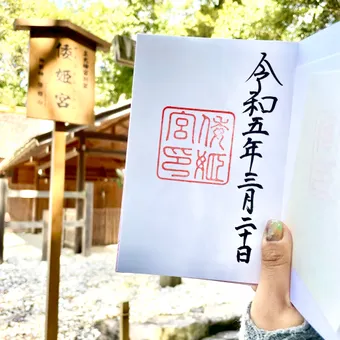 倭姫宮
令和五年三月二十日
倭姫宮印